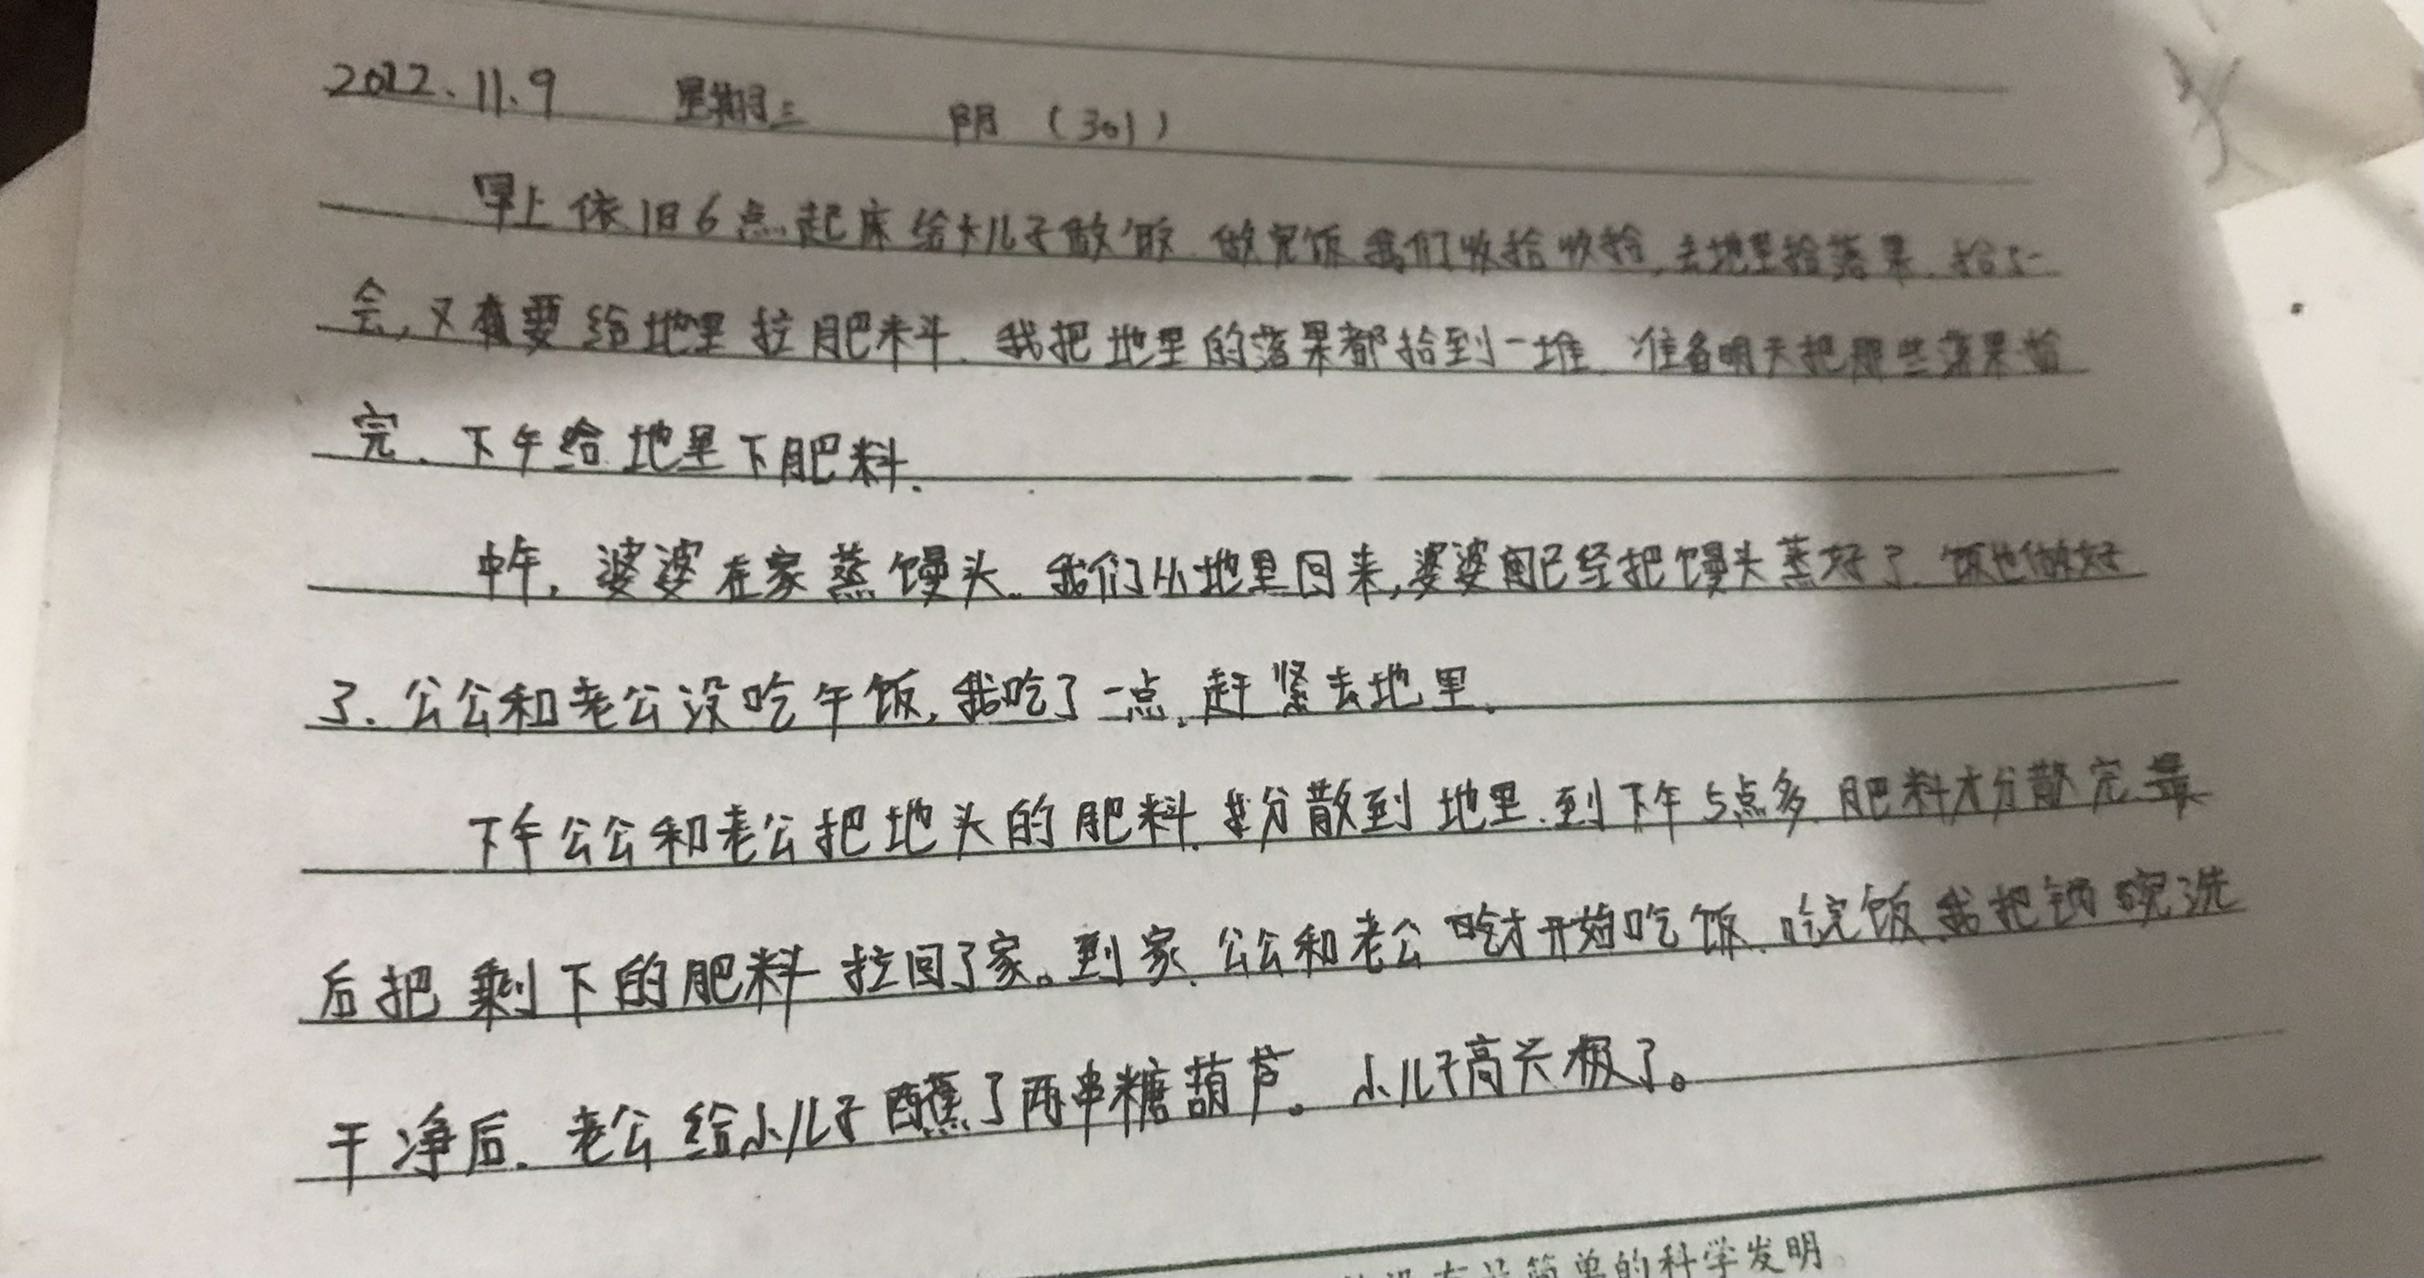 2022.11.9 星期三 阴（301）
早上依旧6点起床给大儿子做饭.做完饭我们收拾收拾,去地里拾落果.拾了一
会,又要给地里拉肥料.我把地里的落果都拾到一堆.准备明天把那些落果拾
完.下午给地里下肥料.
中午,婆婆在家蒸馒头。我们从地里回来,婆婆已经把馒头蒸好了.饭也做好
了.公公和老公没吃午饭,我吃了一点.赶紧去地里.
下午公公和老公把地头的肥料.分散到地里.到下午5点多.肥料才分散完.最
后把剩下的肥料拉回了家。到家.公公和老公才开始吃饭.吃完饭.我把锅碗洗
干净后.老公给小儿子蘸了两串糖葫芦。小儿子高兴极了。
简单的科学发明